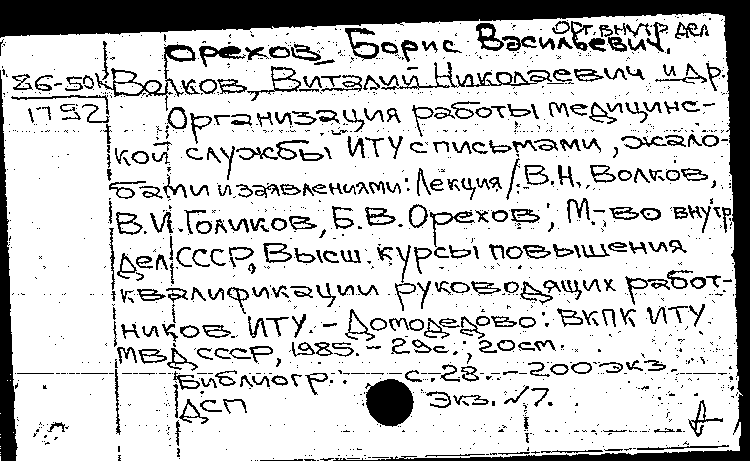 Орг. внутр дел
Орехов Борис Васильевич,
86-50К Волков, Виталий Николаевич и др.
1792 Организация работы медицинс-
кой службы ИТУ с письмами, жало-
бами и заявлениями: Лекция / В.Н. Волков,
В.И. Голиков, Б.В. Орехов; М-во внутр
дел СССР, Высш. курсы повышения
квалификации руководящих работ-
ников ИТУ. - Домодедово: ВКПК ИТУ
МВД СССР, 1985. - 29с.; 20см.
Библиогр.: с. 28. - 200 экз.
ДСП Экз. №7.